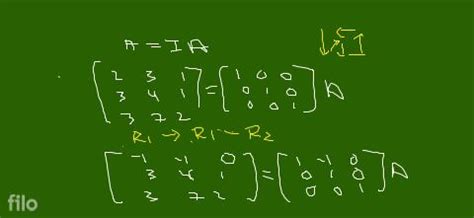 A = I A
[2 3 1
3 4 1
3 7 2] = [1 0 0
0 1 0
0 0 1] A
R1 → R1 - R2
[-1 -1 0
3 4 1
3 7 2] = [1 -1 0
0 1 0
0 0 1] A
filo